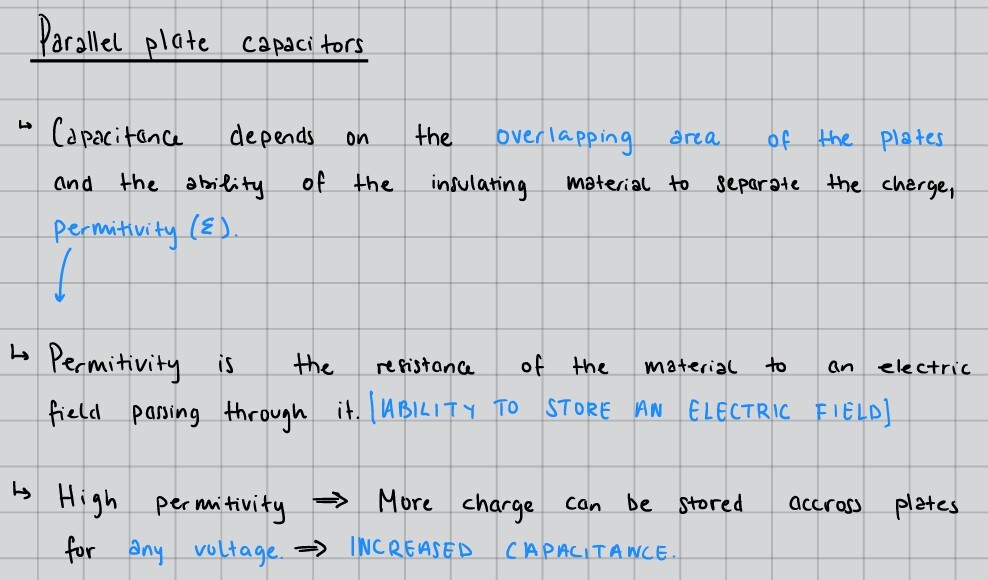 Parallel plate capacitors
↳ Capacitance depends on the overlapping area of the plates
and the ability of the insulating material to separate the charge,
permitivity (ε).
↳ Permitivity is the resistance of the material to an electric
field passing through it. [ABILITY TO STORE AN ELECTRIC FIELD]
↳ High permitivity ⇒ More charge can be stored accross plates
for any voltage. ⇒ INCREASED CAPACITANCE.